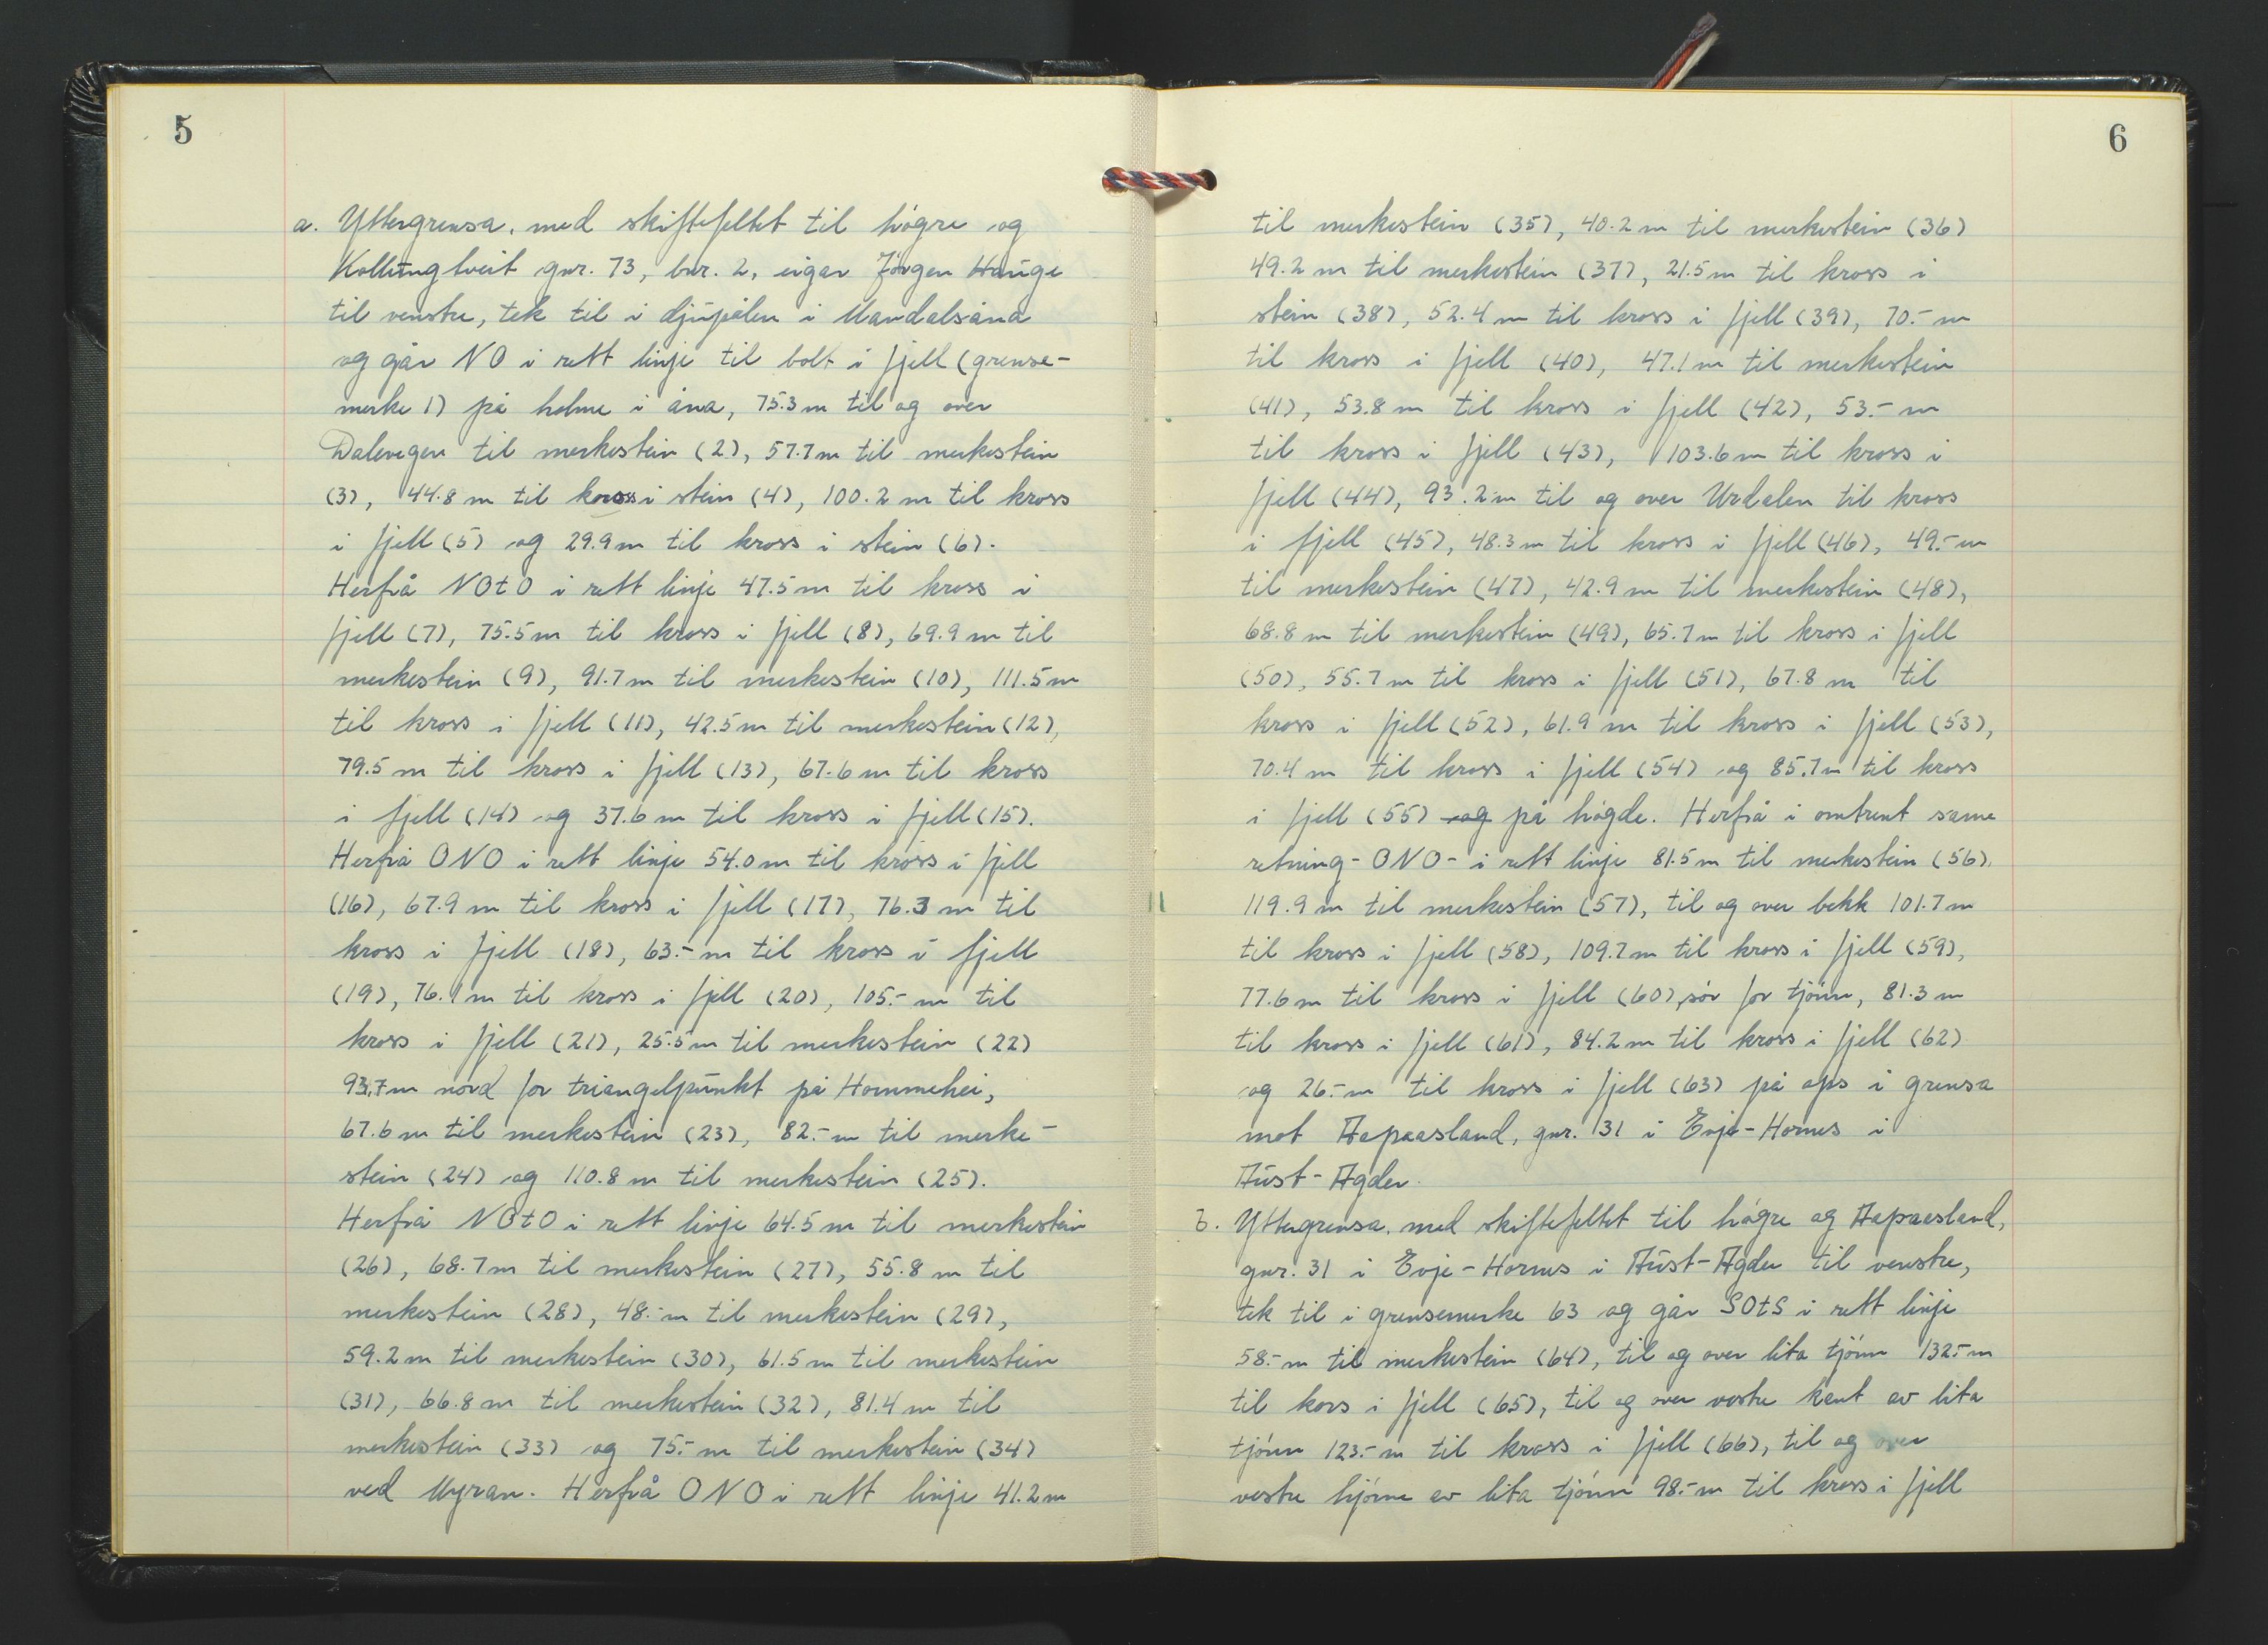 5
a. Yttergrensa, med skiftefeltet til högre og
Kollungtveit gnr. 73, bnr. 2, eigar Jörgen Hauge
til venstre, tek til i djupålen i Mandalsåna
og går NO i rett linje til bolt i fjell (grense-
merke 1) på holme i åna, 75.3 m til og over
Dalevegen til merkestein (2), 57.7 m til merkestein
(3), 44.8 m til kross i stein (4), 100.2 m til kross
i fjell (5) og 29.9 m til kross i stein (6).
Herfrå NOtO i rett linje 47.5 m til kross i
fjell (7), 75.5 m til kross i fjell (8), 69.9 m til
merkestein (9), 91.7 m til merkestein (10), 111.5 m
til kross i fjell (11), 42.5 m til merkestein (12),
79.5 m til kross i fjell (13), 67.6 m til kross
i fjell (14) og 37.6 m til kross i fjell (15).
Herfrå ONO i rett linje 54.0 m til kross i fjell
(16), 67.9 m til kross i fjell (17), 76.3 m til
kross i fjell (18), 63.- m til kross i fjell
(19), 76.1 m til kross i fjell (20), 105.- m til
kross i fjell (21), 25.5 m til merkestein (22)
93.7 m nord for triangelpunkt på Hommehei,
67.6 m til merkestein (23), 82.- m til merke-
stein (24) og 110.8 m til merkestein (25).
Herfrå NOtO i rett linje 64.5 m til merkestein
(26), 68.7 m til merkestein (27), 55.8 m til
merkestein (28), 48.- m til merkestein (29),
59.2 m til merkestein (30), 61.5 m til merkestein
(31), 66.8 m til merkestein (32), 81.4 m til
merkestein (33) og 75.- m til merkestein (34)
ved Myran. Herfrå ONO i rett linje 41.2 m
6
til merkestein (35), 40.2 m til merkestein (36)
49.2 m til merkestein (37), 21.5 m til kross i
stein (38), 52.4 m til kross i fjell (39), 70.- m
til kross i fjell (40), 47.1 m til merkestein
(41), 53.8 m til kross i fjell (42), 53.- m
til kross i fjell (43), 103.6 m til kross i
fjell (44), 93.2 m til og over Urdalen til kross
i fjell (45), 48.3 m til kross i fjell (46), 49.- m
til merkestein (47), 42.9 m til merkestein (48),
68.8 m til merkestein (49), 65.7 m til kross i fjell
(50), 55.7 m til kross i fjell (51), 67.8 m til
kross i fjell (52), 61.9 m til kross i fjell (53),
70.4 m til kross i fjell (54) og 85.7 m til kross
i fjell (55) og på högde. Herfrå i omtrent same
retning - ONO - i rett linje 81.5 m til merkestein (56),
119.9 m til merkestein (57), til og over bekk 101.7 m
til kross i fjell (58), 109.7 m til kross i fjell (59),
77.6 m til kross i fjell (60), sör for tjönn, 81.3 m
til kross i fjell (61), 84.2 m til kross i fjell (62)
og 26.- m til kross i fjell (63) på aps i grensa
mot Aapaasland, gnr. 31 i Evje-Hornes i
Aust-Agder.
b. Yttergrensa, med skiftefeltet til högre og Aapaasland,
gnr. 31 i Evje-Hornes i Aust-Agder til venstre,
tek til i grensemerke 63 og går SOtS i rett linje
58.- m til merkestein (64), til og over lita tjönn 132.- m
til kors i fjell (65), til og over vestre kant av lita
tjönn 123.- m til kross i fjell (66), til og over
vestre hjörne av lita tjönn 98.- m til kross i fjell